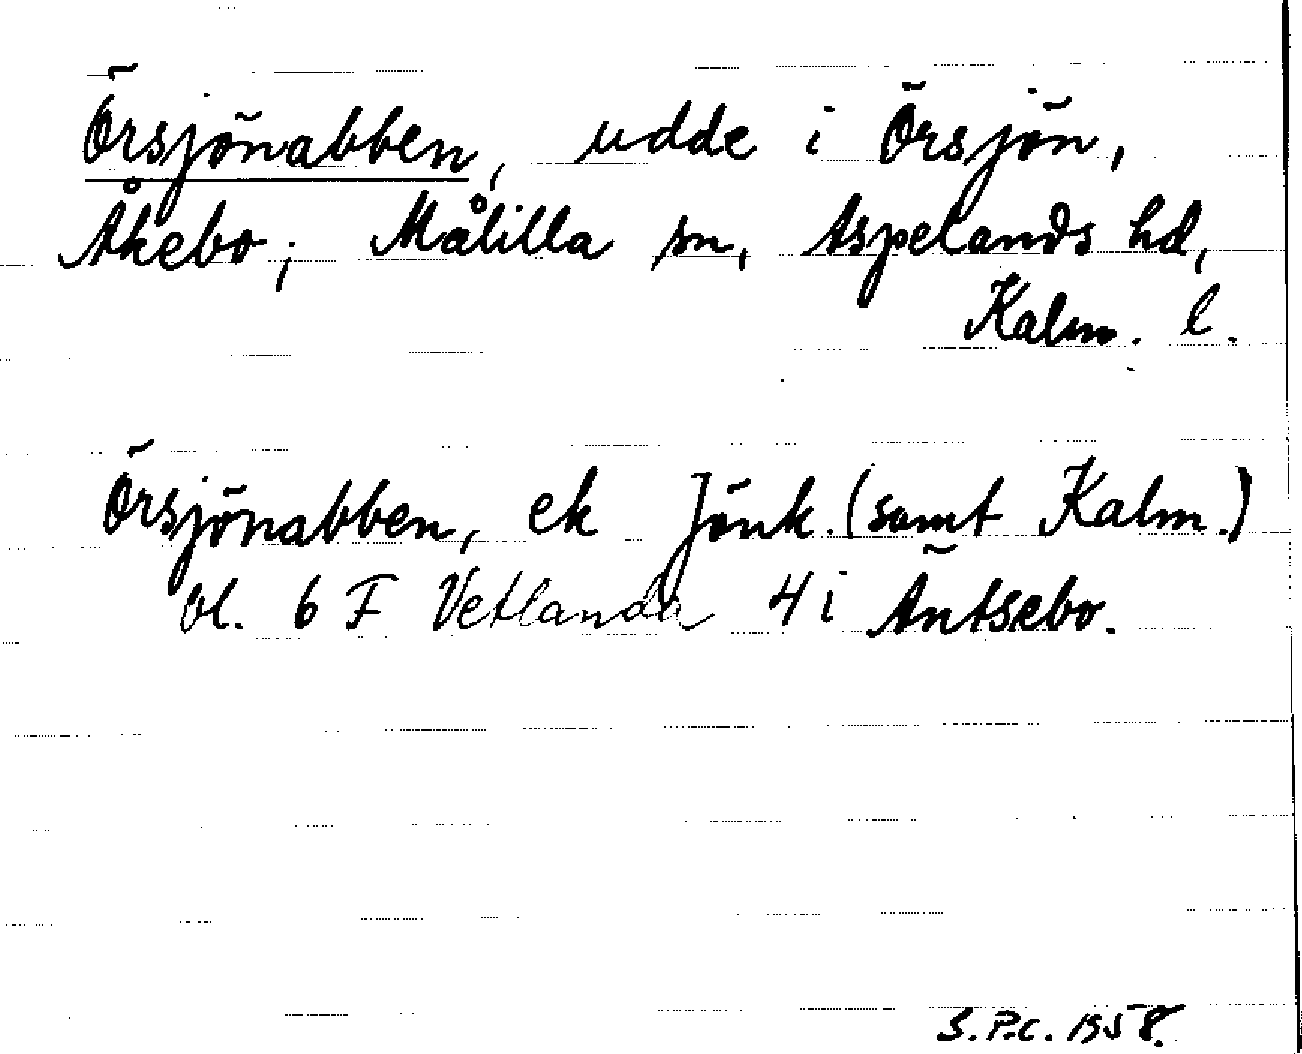 Örsjönabben, udde i Örsjön,
Åkebo; Målilla sn, Aspelands hd,
Kalm. l.
Örsjönabben, ek Jönk. (samt Kalm.)
bl. 6 F Vetlanda 4 i Äntsebo.
S.P.C. 1958.